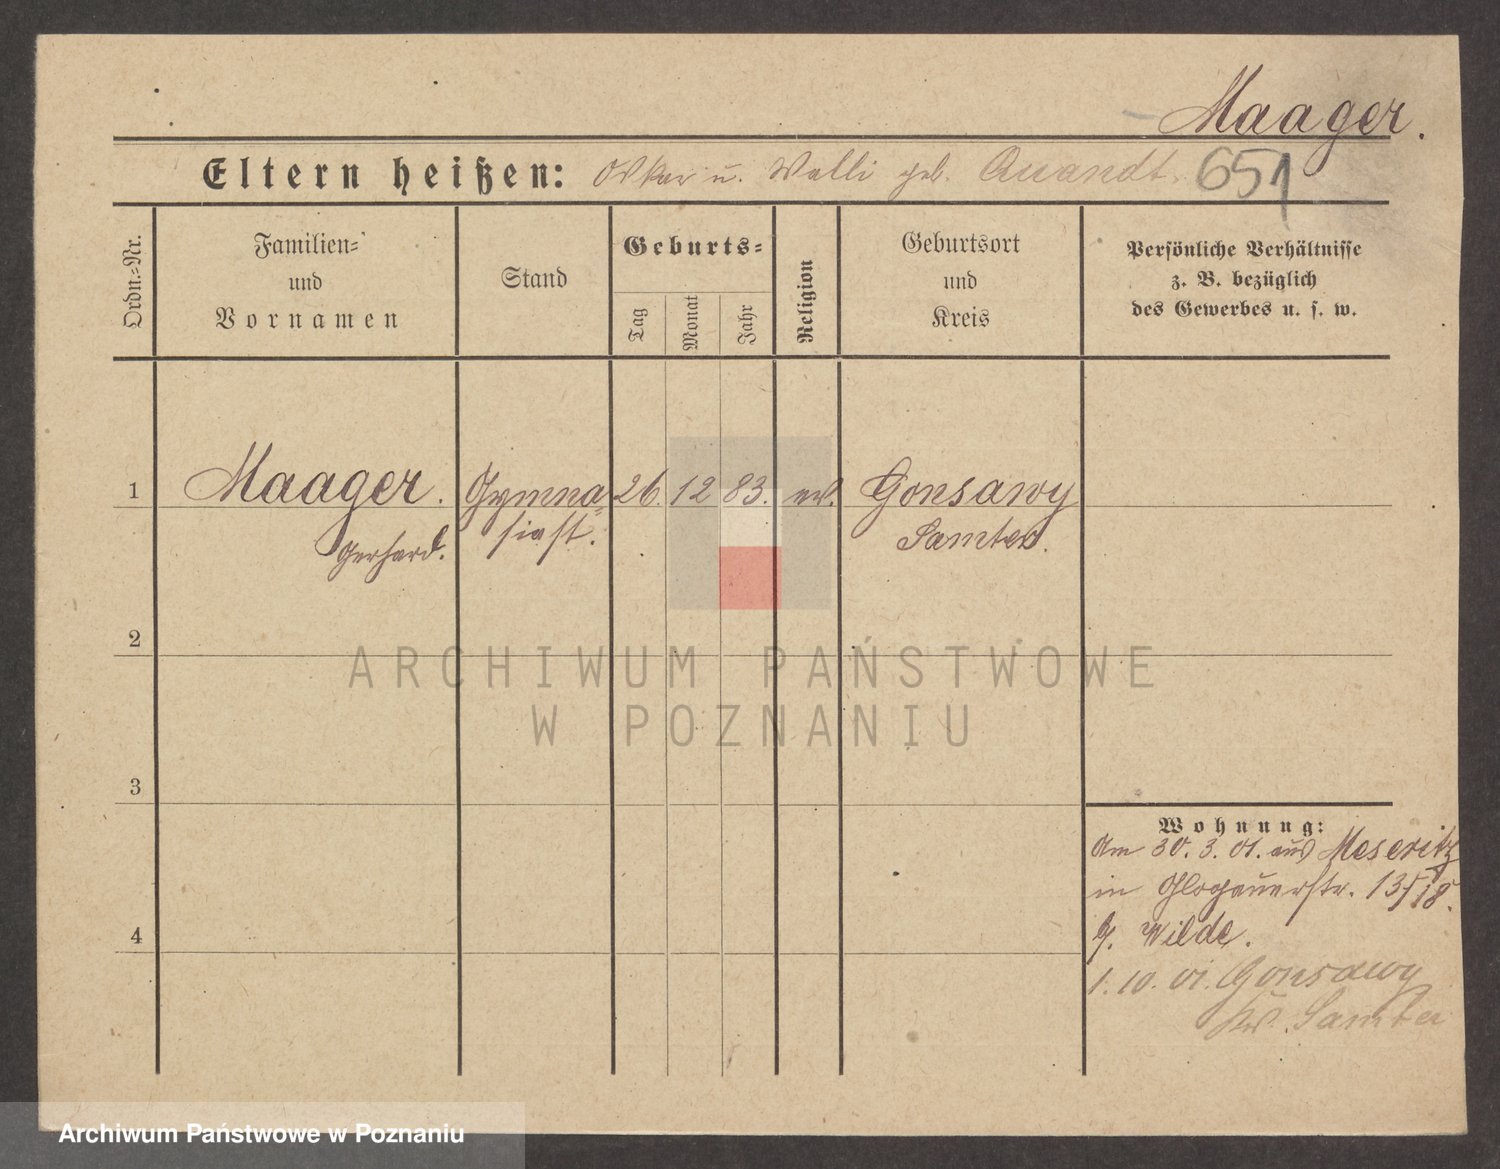 Maager.
Eltern heißen: Oskar u. Walli geb. Quandt.
651
Ordn.-Nr.
Familien-
und
Vornamen
Stand
Geburts-
Tag
Monat
Jahr
Religion
Geburtsort
und
Kreis
Persönliche Verhältnisse
z. B. bezüglich
des Gewerbes u. s. w.
1 Maager. Gymna- 26. 12 83. ev. Gonsawy
Gerhard. siast. Samter.
2
ARCHIWUM PAŃSTWOWE
W POZNANIU
3
Wohnung:
Am 30. 3. 01. aus Meseritz
in Glogauerstr.
b. Wilde.
4
1. 10. 01. Gonsawy
Kr. Samter
Archiwum Państwowe w Poznaniu